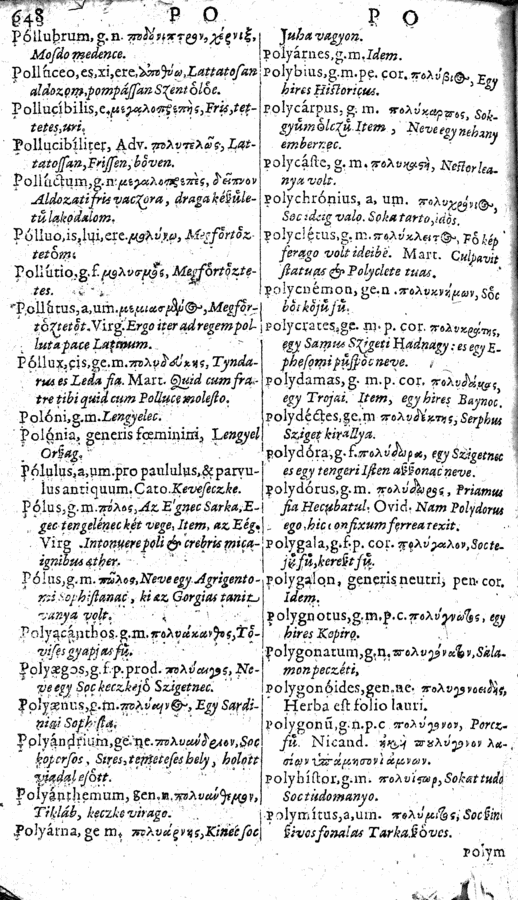 648 P O P O
Póllubrum, g. n. ποδόνιπτρον, χέρνιξ,
Mosdo medence.
Pollúceo, es, xi, ere, Lattatosan
aldozom, pompássan Szentólóc.
Pollucíbilis, e. μεγαλοπρεπής, Fris, tet-
tetes, uri.
Pollucibáliter, Adv. πολυτελῶς, Lat-
tatossan, Frissen, bóven.
Pollúctum, g. n. μεγαλοπρεπὲς, δεῖπνον
Aldozati fris vaczora, draga késúle-
tú lakodalom.
Pólluo, is, lui, ere. μολύνω, Megfórtóz
tetóm.
Pollútio, g. f. μολυσμὸς, Megfórtózte-
tes.
Pollútus, a, um. Megfór-
tóztetót. Virg. Ergo iter ad regem pol-
luta pace Latinum.
Póllux, cis, ge. m. πολυδεύκης, Tynda-
rus es Leda fia. Mart. Quid cum fra-
tre tibi quid cum Polluce molesto.
Polóni, g. m. Lengyelec.
Polónia, generis fœminini, Lengyel
Orság.
Pólulus, a, um. pro paululus, & parvu-
lus antiquum. Cato. Keveseczke.
Pólus, g. m. πόλος, Az E'gnec Sarka, E-
gec tengelénec két vege, Item, az Eég.
Virg. Intonuere poli & crebris mica-
ignibus æther.
Pólus, g. m. πῶλος, Neve egy Agrigento-
mi Sophistanac, ki az Gorgias tanit
vanya volt.
Polyacánthos. g. m. πολυάκανθος, Tó-
vises gyapjas fú.
Polyægos, g. f. p. prod. πολύαιγος, Ne-
ve egy Soc keczkejó Szigetnec.
Polyænus, g. m. Egy Sardi-
niai Sophista.
Polyándrium, ge. ne. Soc
koporsos, Sires, temeteses hely, holott
viadal esótt.
Polyánthemum, gen. n. πολυάνθεμον,
Tikláb, keczke virago.
Polyárna, ge m. πολυάρνης, Kinéc soc
Juha vagyon.
Polyárnes, g. m. Idem.
Polybius, g. m. pe. cor. πολύβιος, Egy
hires Historicus.
Polycárpus, g. m. πολύκαρπος, Sok-
gyúmólczú. Item, Neve egynehany
embernec.
Polycáste, g. m. πολυκαστὴ, Nestor lea-
nya volt.
Polychrónius, a, um. πολυχρόνιος,
Soc ideig valo. Soka tarto, idós.
Polyclétus, g. m. πολύκλειτος, Fó kép
ferago volt ideibé. Mart. Culpavit
statuas & Polyclete tuas.
Polycnémon, ge. n. πολυκνήμων, Sóc
bóikójú fú.
Polycrates, ge. m. p. cor. πολυκράτης,
egy Samus Szigeti Hadnagy: es egy E-
phesomi púspóc neve.
Polydamas, g. m. p. cor. πολυδάμας,
egy Trojai. Item, egy hires Baynoc.
Polydéctes, ge. m πολυδέκτης, Serphus
Sziget kirallya.
Polydóra, g. f. πολυδώρα, egy Szigetnec
es egy tengeri Isten asszonac neve.
Polydórus, g. m. πολύδωρος, Priamus
fia Hecubatul. Ovid. Nam Polydorus
ego, hic confixum ferrea texit.
Polygala, g. f. p. cor. πολύγαλον, Soc te-
jú fú, kerekt fú.
Polygalon, generis neutri, pen. cor.
Idem.
Polygnotus, g. m. p. c. πολύγνωτος, egy
hires Kepiro.
Polygonatum, g. n. πολυγόνατον, Sala-
mon peczéti,
Polygonóides, gen. ne. πολυγονοειδὴς,
Herba est folio lauri.
Polygonū, g. n. p. c πολύγονον, Porcz-
fú. Nicand.
Polyhístor, g. m. πολυΐστωρ, Sokat tudo
Soc tudomanyo.
Polymítus, a, um. πολύμιτος, Soc sini
sives fonalas Tarka sóves.
Polym